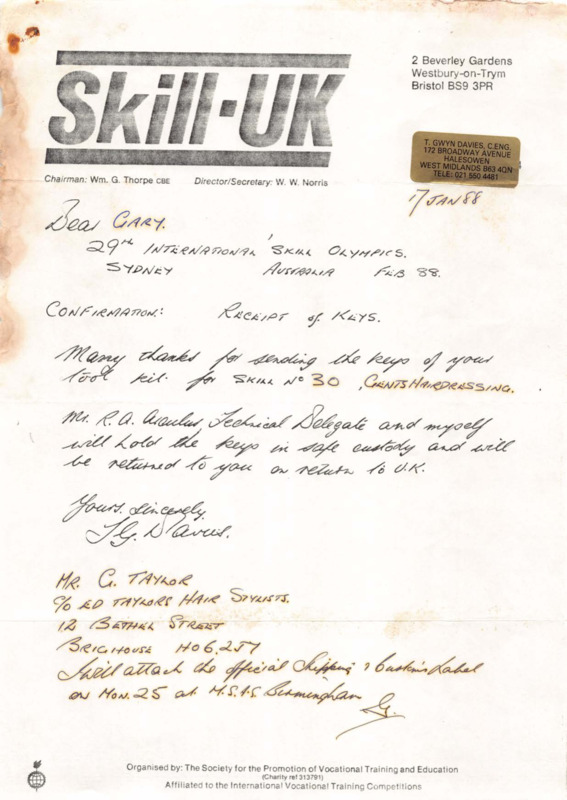 2 Beverley Gardens
Westbury-on-Trym
Bristol BS9 3PR
Skill-UK
T. GWYN DAVIES, C.ENG.
172 BROADWAY AVENUE
HALESOWEN
WEST MIDLANDS B63 4QN
TELE: 021 550 4481
Chairman: Wm. G. Thorpe CBE Director/Secretary: W. W. Norris
17 JAN 88
Dear GARY.
29TH INTERNATIONAL SKILL OLYMPICS.
SYDNEY AUSTRALIA FEB 88.
CONFIRMATION: RECEIPT of KEYS.
Many thanks for sending the keys of your
tool kit. for SKILL No 30, GENTS HAIRDRESSING.
Mr. R. A. Technical Delegate and myself
will hold the keys in safe custody and will
be returned to you on return to U.K.
Yours. Sincerely,
T.G. Davies.
MR. G. TAYLOR
c/o ED TAYLORS HAIR STYLISTS.
12 BETHEL STREET
BRIGHOUSE
I will attach the official Shipping & Customs Label
on MON. 25 at Birmingham
Organised by: The Society for the Promotion of Vocational Training and Education
(Charity ref 313791)
Affiliated to the International Vocational Training Competitions